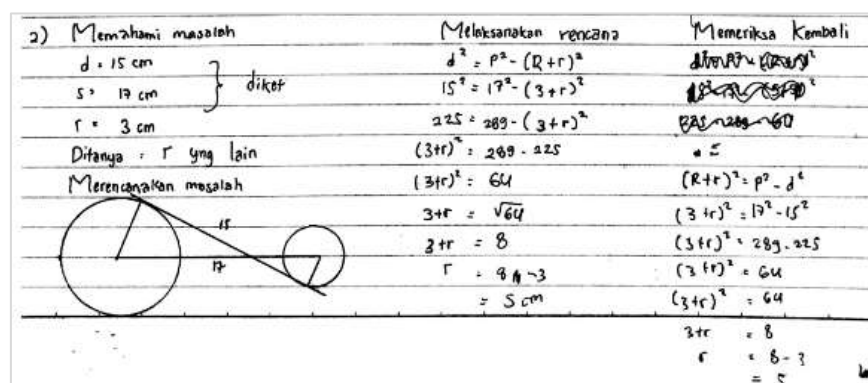 2) Memahami masalah
d = 15 cm
s = 17 cm
diket
r = 3 cm
Ditanya = r yng lain
Merencanakan masalah
15
17
Melaksanakan rencana
d² = p² - (R+r)²
15² = 17² - (3+r)²
225 = 289 - (3+r)²
(3+r)² = 289 - 225
(3+r)² = 64
3+r = √64
3+r = 8
r = 8 - 3
= 5 cm
Memeriksa Kembali
(R+r)² = p² - d²
(3+r)² = 17² - 15²
(3+r)² = 289 - 225
(3+r)² = 64
(3+r)² = 64
3+r = 8
r = 8 - 3
= 5